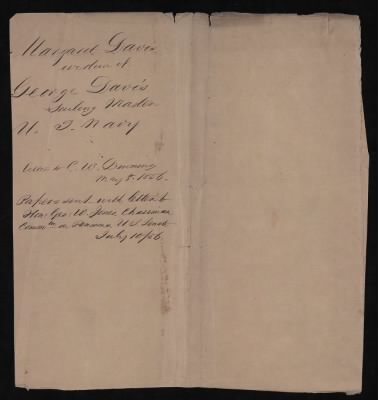 Margaret Davis
widow of
George Davis
Sailing Master
U. S. Navy
C. W.
May 8. 1856.
Papers sent with letter to
Hon. Geo. W. Jones Chairman
Comm. on Pensions U.S. Senate
July 10/56